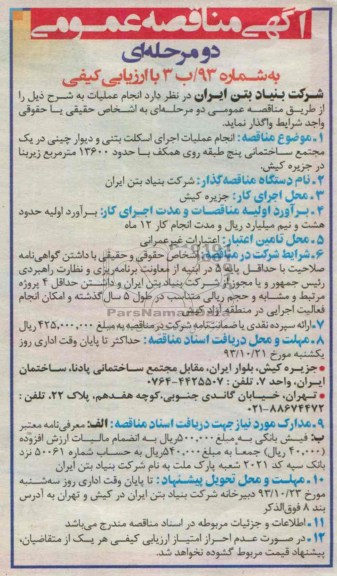 آگهی مناقصه عمومی
دو مرحله‌ای
به شماره ۹۳/ب ۳ با ارزیابی کیفی
شرکت بنیاد بتن ایران در نظر دارد انجام عملیات به شرح ذیل را
از طریق مناقصه عمومی دو مرحله‌ای به اشخاص حقیقی یا حقوقی
واجد شرایط واگذار نماید.
۱- موضوع مناقصه: انجام عملیات اجرای اسکلت بتنی و دیوار چینی در یک
مجتمع ساختمانی پنج طبقه روی همکف با حدود ۱۳۶۰۰ مترمربع زیربنا
در جزیره کیش.
۲- نام دستگاه مناقصه‌گذار: شرکت بنیاد بتن ایران
۳- محل اجرای کار: جزیره کیش
۴- برآورد اولیه مناقصات و مدت اجرای کار: برآورد اولیه حدود
هشت و نیم میلیارد ریال و مدت انجام کار ۱۲ ماه
۵- محل تامین اعتبار: اعتبارات غیرعمرانی
۶- شرایط شرکت در مناقصه: اشخاص حقوقی و حقیقی با داشتن گواهی‌نامه
صلاحیت با حداقل پایه ۵ در ابنیه از معاونت برنامه‌ریزی و نظارت راهبردی
رئیس جمهور و یا مجوز از شرکت بنیاد بتن ایران و داشتن حداقل ۴ پروژه
مرتبط و مشابه و حجم ریالی متناسب در طول ۵ سال گذشته و امکان انجام
فعالیت اجرایی در منطقه آزاد کیش
۷- ارائه سپرده نقدی یا ضمانتنامه شرکت در مناقصه به مبلغ ۴۲۵,۰۰۰,۰۰۰ ریال
۸- مهلت و محل دریافت اسناد مناقصه: حداکثر تا پایان وقت اداری روز
یکشنبه مورخ ۹۳/۱۰/۲۱
• جزیره کیش، بلوار ایران، مقابل مجتمع ساختمانی پادنا، ساختمان
ایران، واحد ۷، تلفن: ۴۴۲۵۵۰۷-۰۷۶۴
• تهران، خیابان گاندی جنوبی، کوچه هفدهم، پلاک ۲۲، تلفن:
۸۸۶۷۴۴۷۲-۰۲۱
۹- مدارک مورد نیاز جهت دریافت اسناد مناقصه: الف: معرفی‌نامه معتبر
ب: فیش بانکی به مبلغ ۵۰۰,۰۰۰ ریال به انضمام مالیات ارزش افزوده
(۴۰,۰۰۰ ریال) جمعا به مبلغ ۵۴۰,۰۰۰ ریال به حساب شماره ۵۰۰۶۱ نزد
بانک سپه کد ۲۰۲۱ شعبه پارک ملت به نام شرکت بنیاد بتن ایران
۱۰- مهلت و محل تحویل پیشنهاد: تا پایان وقت اداری روز سه‌شنبه
مورخ ۹۳/۱۰/۲۳ دبیرخانه شرکت بنیاد بتن ایران در کیش و تهران به آدرس
بند ۸ فوق‌الذکر
۱۱- اطلاعات و جزئیات مربوطه در اسناد مناقصه مندرج می‌باشد
۱۲- در صورت عدم احراز امتیاز ارزیابی کیفی هر یک از متقاضیان،
پیشنهاد قیمت مربوط گشوده نخواهد شد.